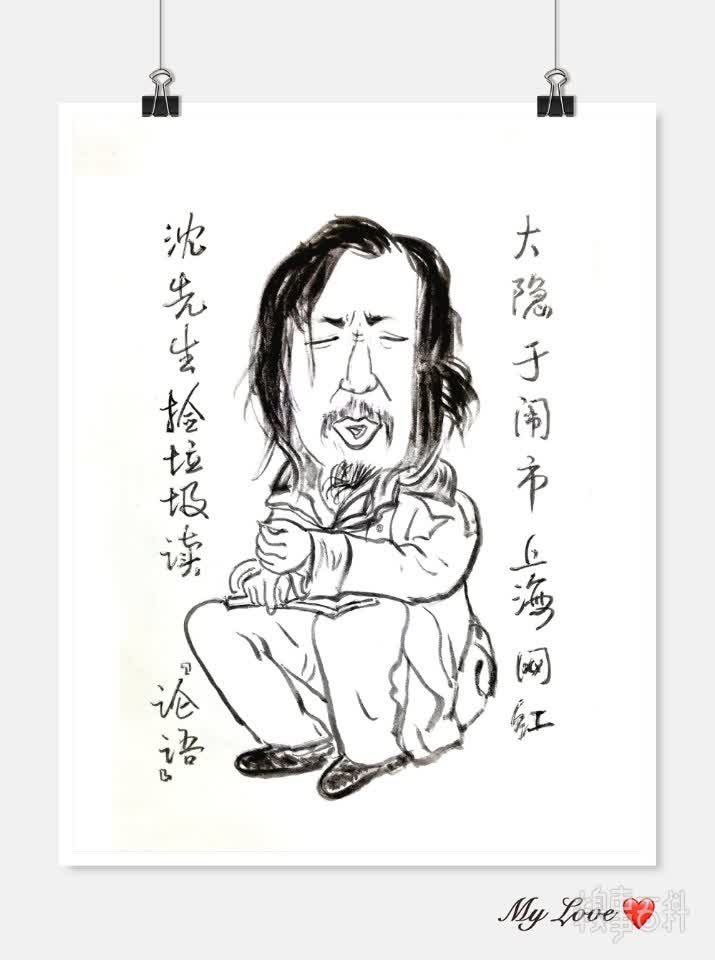 大隐于闹市上海网红
沈先生捡垃圾读
『论语』
My Love